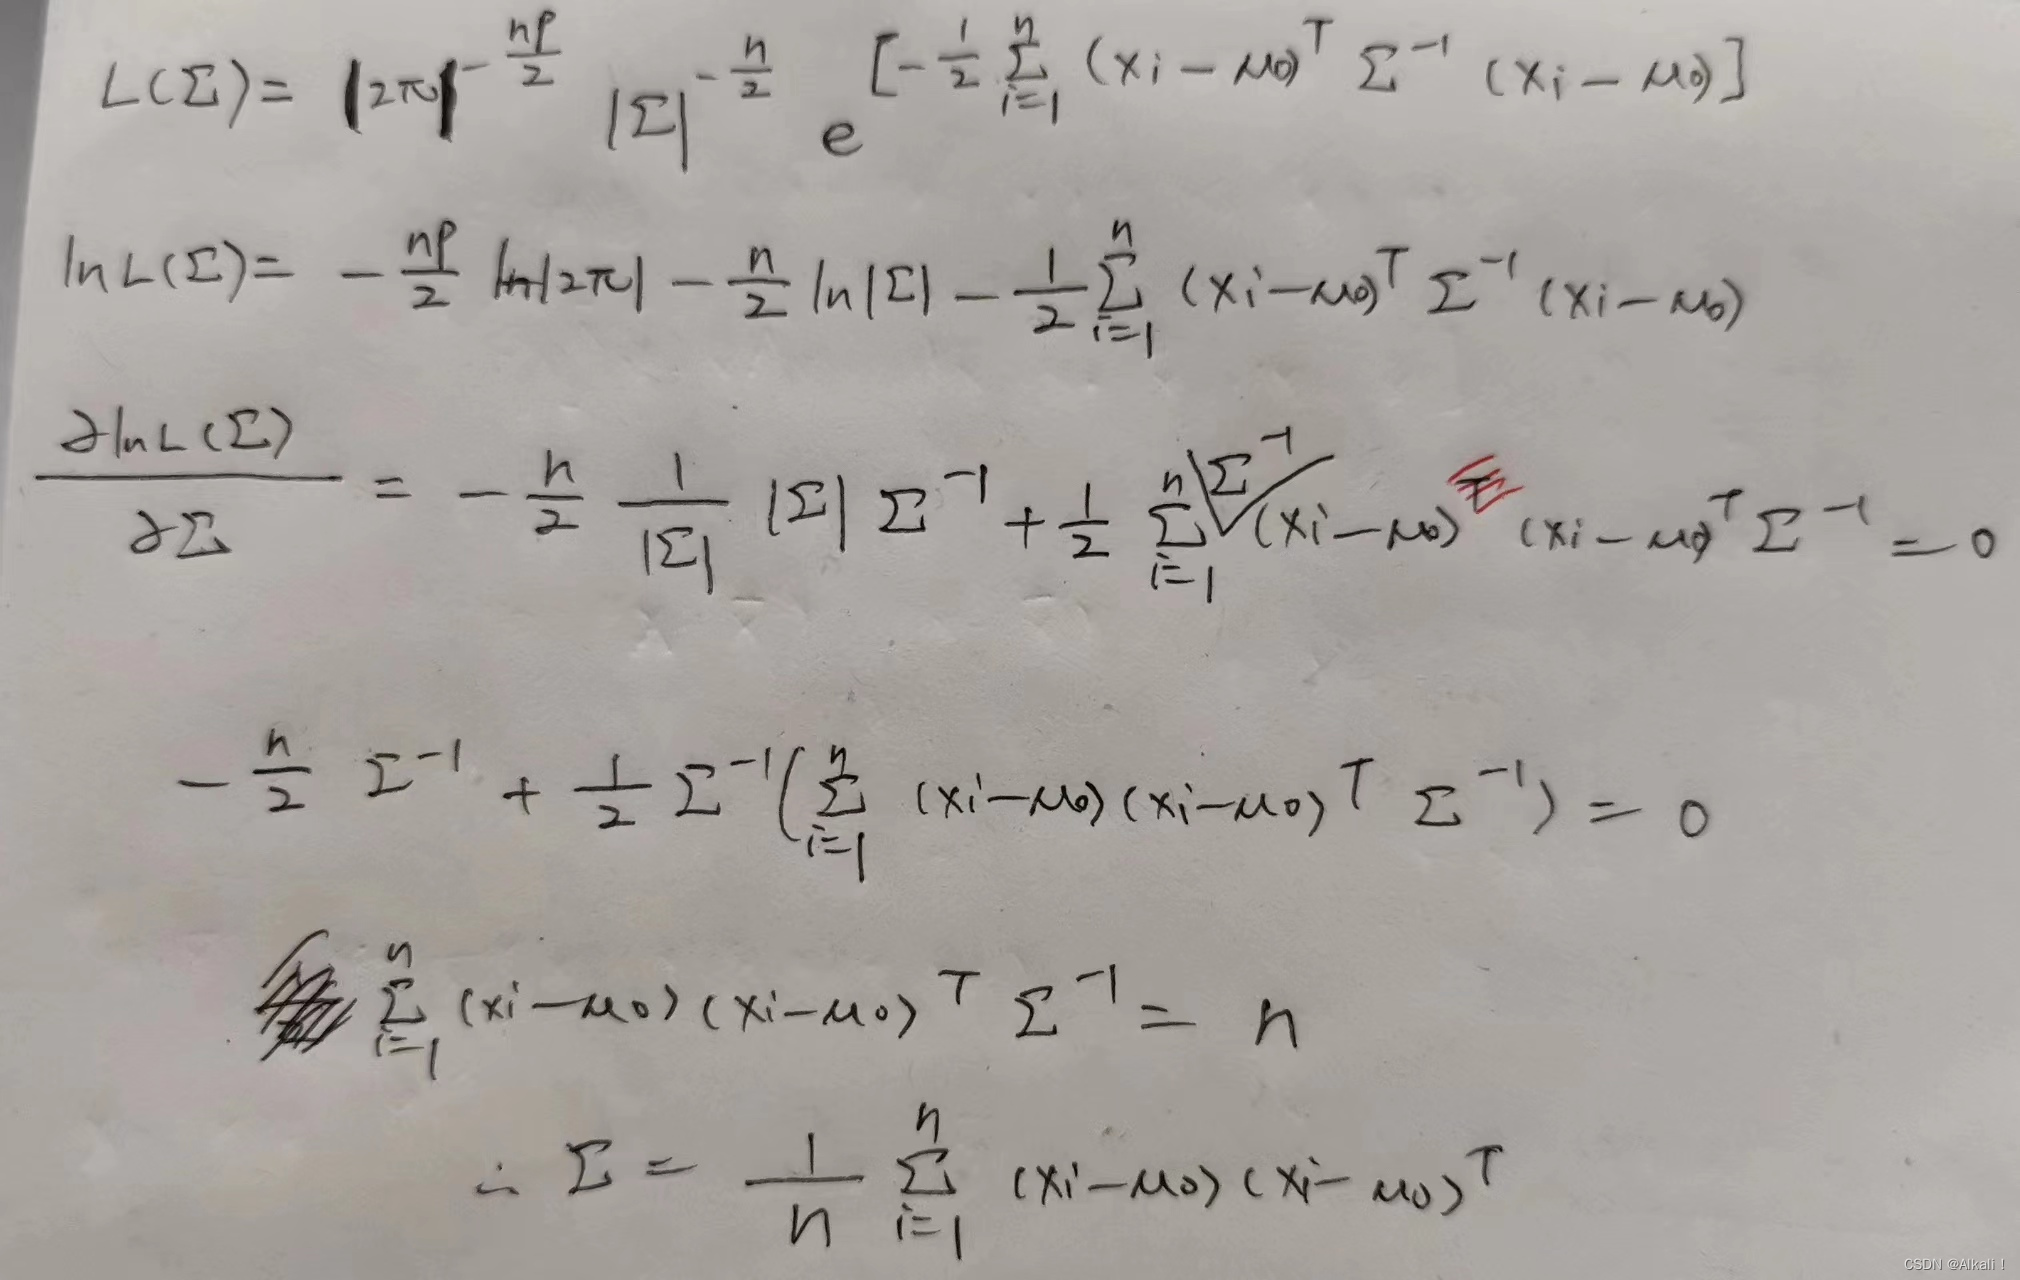 L(Σ) = |2π|^{-\frac{np}{2}} |Σ|^{-\frac{n}{2}} e^{[-\frac{1}{2} \sum_{i=1}^{n} (x_i - μ_0)^T Σ^{-1} (x_i - μ_0)]}
ln L(Σ) = -\frac{np}{2} ln|2π| - \frac{n}{2} ln|Σ| - \frac{1}{2} \sum_{i=1}^{n} (x_i - μ_0)^T Σ^{-1} (x_i - μ_0)
\frac{∂ln L(Σ)}{∂Σ} = -\frac{n}{2} \frac{1}{|Σ|} |Σ| Σ^{-1} + \frac{1}{2} \sum_{i=1}^{n} Σ^{-1} (x_i - μ_0) (x_i - μ_0)^T Σ^{-1} = 0
-\frac{n}{2} Σ^{-1} + \frac{1}{2} Σ^{-1} (\sum_{i=1}^{n} (x_i - μ_0)(x_i - μ_0)^T Σ^{-1}) = 0
\sum_{i=1}^{n} (x_i - μ_0)(x_i - μ_0)^T Σ^{-1} = n
∴ Σ = \frac{1}{n} \sum_{i=1}^{n} (x_i - μ_0)(x_i - μ_0)^T
CSDN @Alkali！